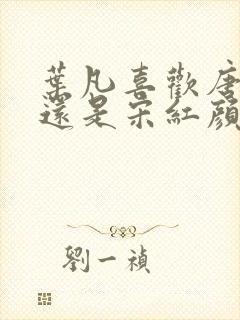 葉凡喜歡唐
還是宋紅顏
劉一禎